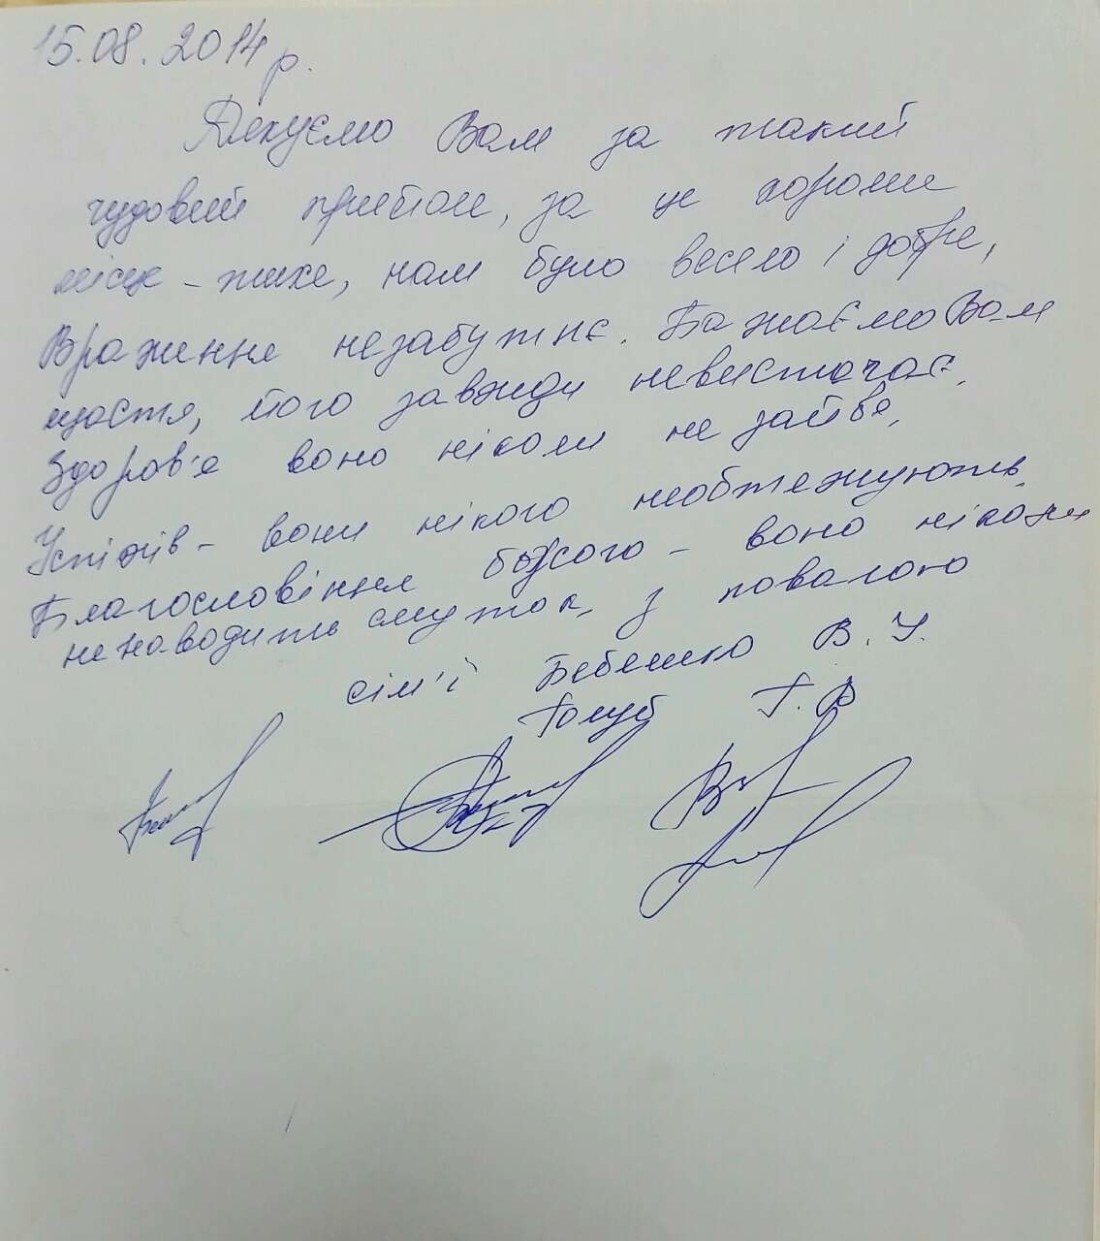 15.08.2014 р.
Дякуємо Вам за такий
чудовий прийом, за це хороше
місце - тихе, нам було весело і добре,
Враження незабутнє. Бажаємо Вам
щастя, його завжди невистачає,
Здоров'я воно ніколи не зайве,
Успіхів - вони нікого необтяжують,
Благословіння божого - воно ніколи
не наводить смуток, з повагою
сім'ї Бебешко В. У.
Голуб Г. В